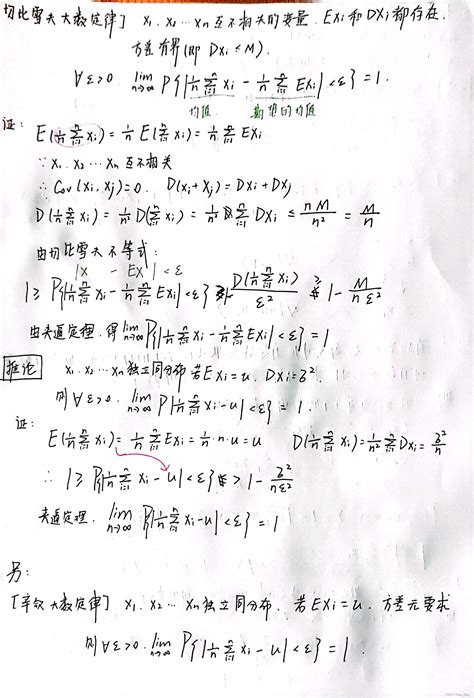 切比雪夫大数定律] X₁. X₂ … Xn 互不相关的变量. EXi 和 DXi 都存在.
方差有界 (即 DXi ≤ M).
∀ε>0. lim n→∞ P{|1/n Σ(i=1..n) Xi - 1/n Σ(i=1..n) EXi| < ε} = 1.
均值 期望的均值
证:
E(1/n Σ(i=1..n) Xi) = 1/n E(Σ(i=1..n) Xi) = 1/n Σ(i=1..n) EXi
∵ X₁. X₂ … Xn 互不相关
∴ Cov(Xi, Xj)=0. D(Xi+Xj) = DXi + DXj
D(1/n Σ(i=1..n) Xi) = 1/n² D(Σ(i=1..n) Xi) = 1/n² Σ(i=1..n) DXi ≤ nM/n² = M/n
由切比雪夫不等式:
|X - EX| < ε
1 ≥ P{|1/n Σ(i=1..n) Xi - 1/n Σ(i=1..n) EXi| < ε} ≥ 1 - D(1/n Σ(i=1..n) Xi)/ε² ≥ 1 - M/nε²
由夹逼定理. 得 lim n→∞ P{|1/n Σ(i=1..n) Xi - 1/n Σ(i=1..n) EXi| < ε} = 1
推论 X₁. X₂ … Xn 独立同分布 若 EXi = u. DXi = σ².
则 ∀ε>0. lim n→∞ P{|1/n Σ(i=1..n) Xi - u| < ε} = 1.
证:
E(1/n Σ(i=1..n) Xi) = 1/n Σ(i=1..n) EXi = 1/n · n · u = u D(1/n Σ(i=1..n) Xi) = 1/n² Σ(i=1..n) DXi = σ²/n
∴ 1 ≥ P{|1/n Σ(i=1..n) Xi - u| < ε} ≥ 1 - σ²/nε²
夹逼定理. lim n→∞ P{|1/n Σ(i=1..n) Xi - u| < ε} = 1
另:
[辛钦大数定律] X₁. X₂ … Xn 独立同分布. 若 EXi = u. 方差无要求
则 ∀ε>0. lim n→∞ P{|1/n Σ(i=1..n) Xi - u| < ε} = 1.